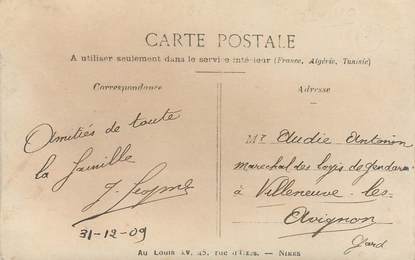 CARTE POSTALE
A utiliser seulement dans le service intérieur (France, Algérie, Tunisie)
Correspondance
Adresse
Amitiés de toute
la famille
31-12-09
Mr Audie Antonin
marechal des logis de Gendarm
à Villeneuve-les-
Avignon
Gard
Au Louis XV, 45, rue d' — NIMES